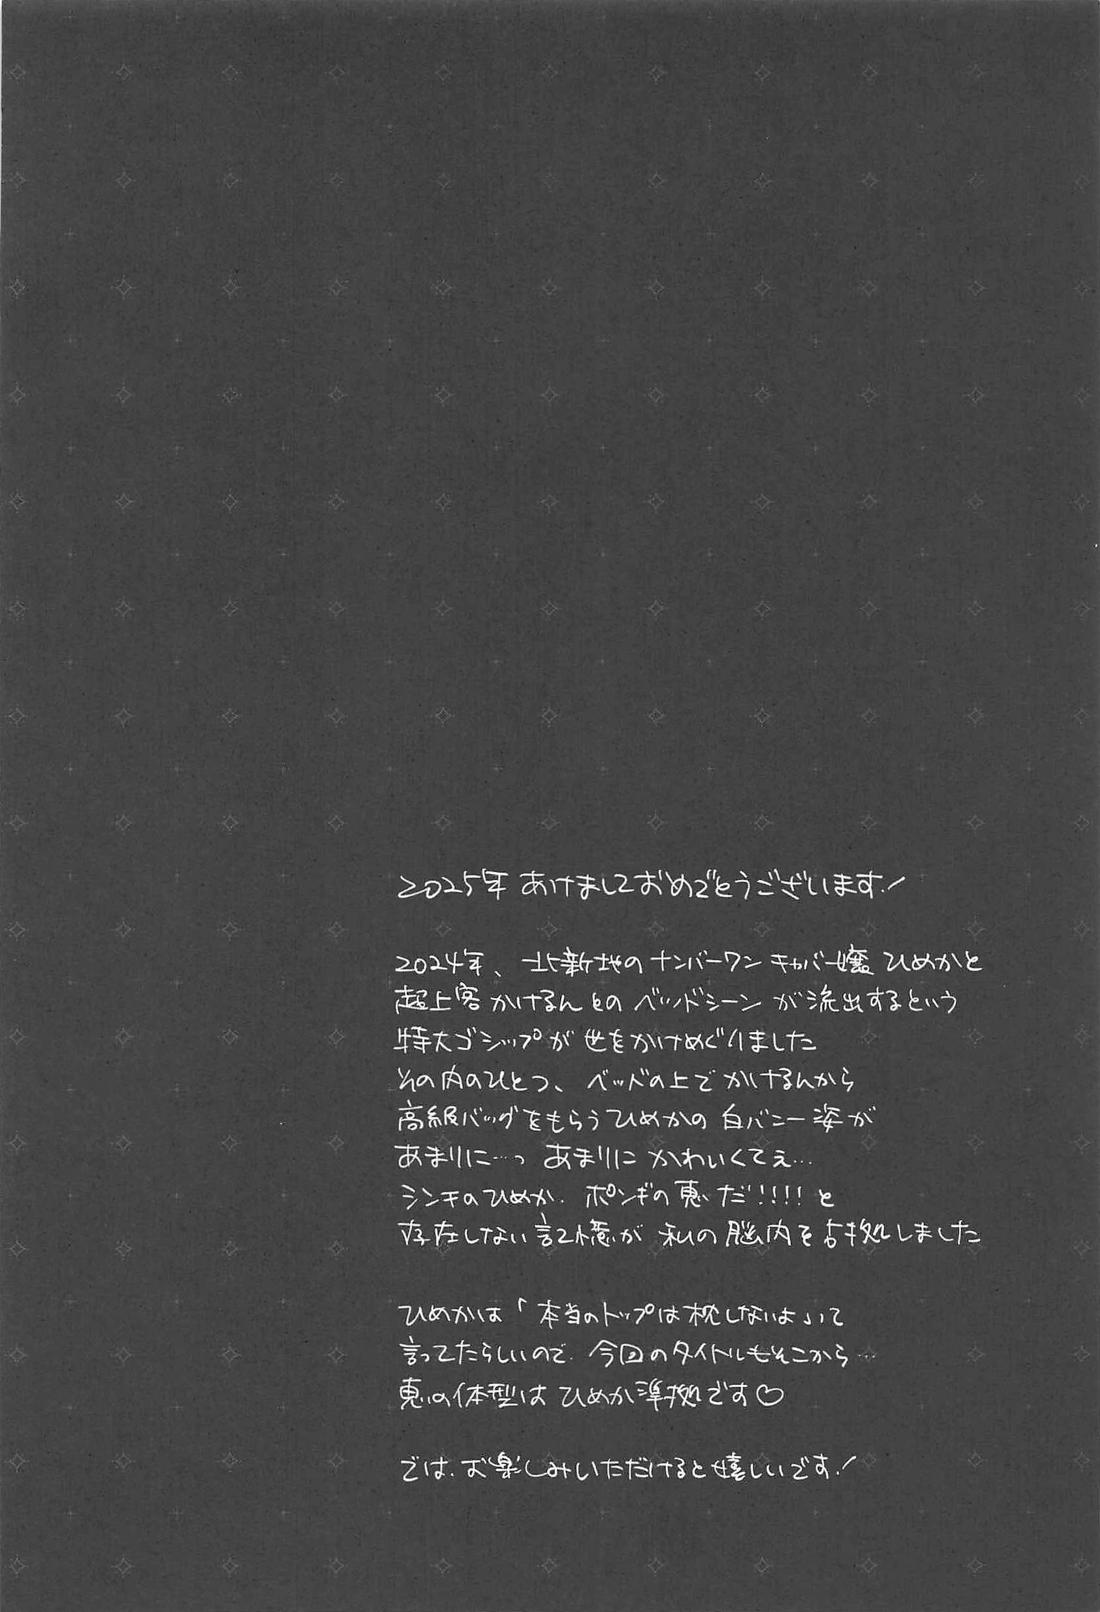 2025年 あけましておめでとうございます!
2024年、北新地のナンバーワンキャバ嬢 ひめかと
超上客 かけるんとの ベッドシーン が流出するという
特大ゴシップが 世をかけめぐりました
その内のひとつ、ベッドの上で かけるんから
高級バッグをもらうひめかの 白バニー姿が
あまりに…っ あまりに かわいくてぇ…
シンチのひめか. ポンギの恵だ!!!!と
存在しない記憶が 私の脳内を占拠しました
ひめかは「本当のトップは枕しないよ」って
言ってたらしいので. 今回のタイトルもそこから…
恵の体型は ひめか準拠です♡
では. お楽しみいただけると嬉しいです!